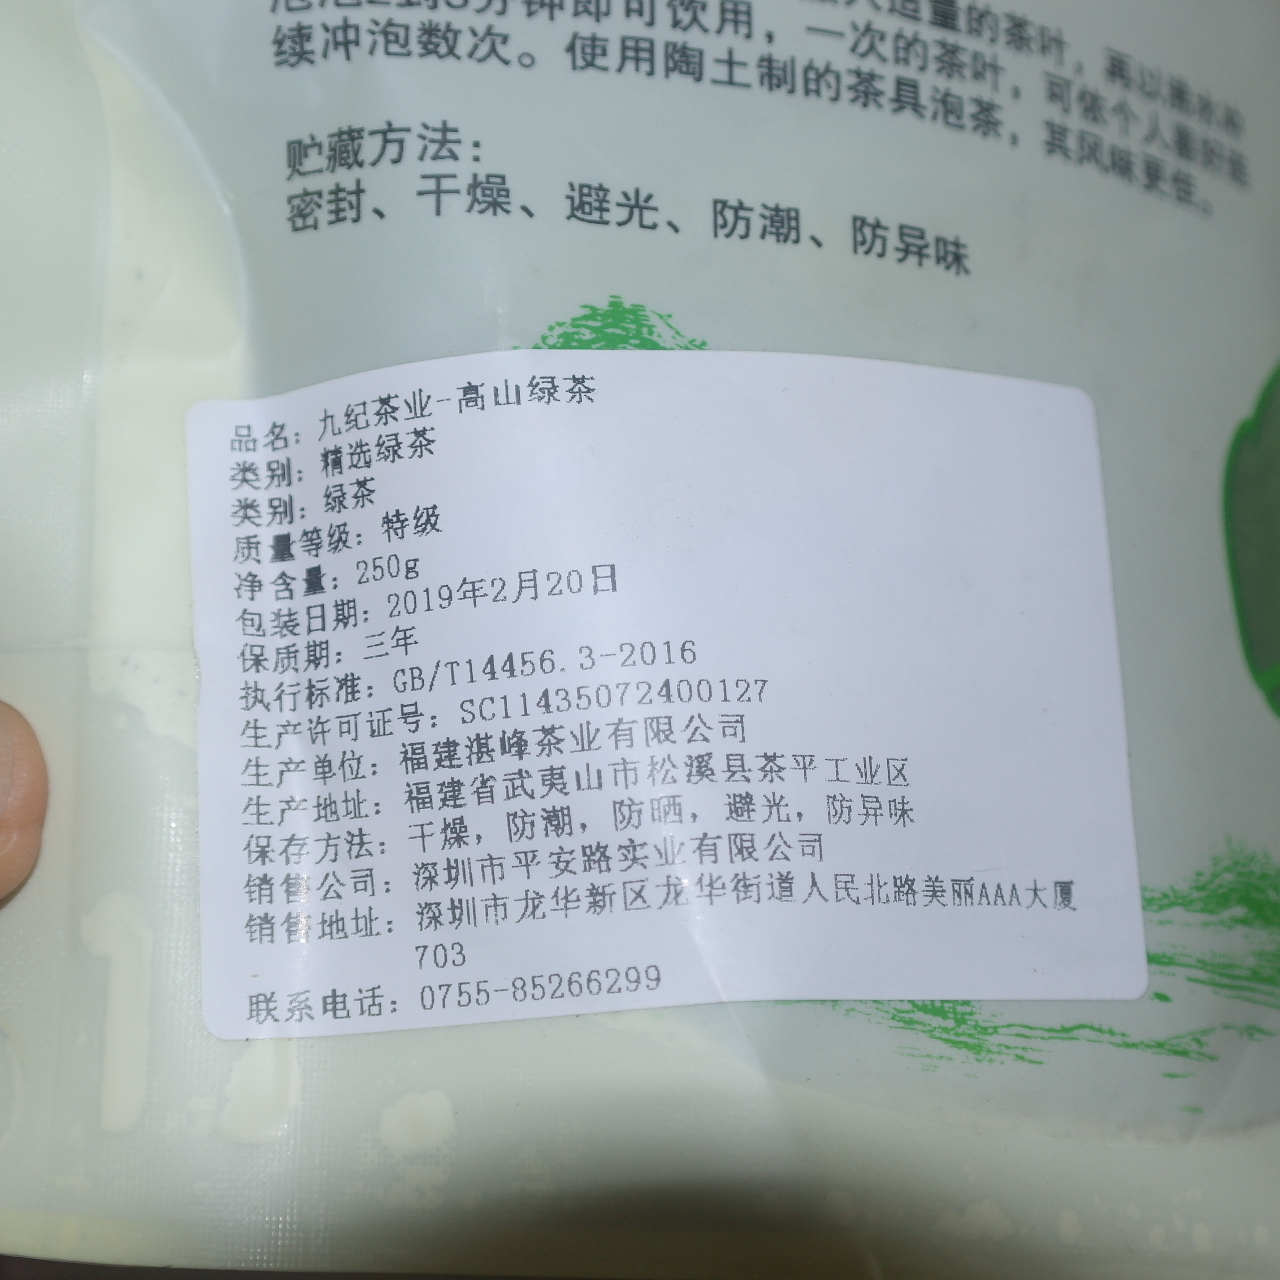 泡泡2到3分钟即可饮用，一次的茶叶，可依个人喜好连
续冲泡数次。使用陶土制的茶具泡茶，其风味更佳。
贮藏方法：
密封、干燥、避光、防潮、防异味
品名：九纪茶业-高山绿茶
类别：精选绿茶
类别：绿茶
质量等级：特级
净含量：250g
包装日期：2019年2月20日
保质期：三年
执行标准：GB/T14456.3-2016
生产许可证号：SC11435072400127
生产单位：福建湛峰茶业有限公司
生产地址：福建省武夷山市松溪县茶平工业区
保存方法：干燥，防潮，防晒，避光，防异味
销售公司：深圳市平安路实业有限公司
销售地址：深圳市龙华新区龙华街道人民北路美丽AAA大厦
703
联系电话：0755-85266299